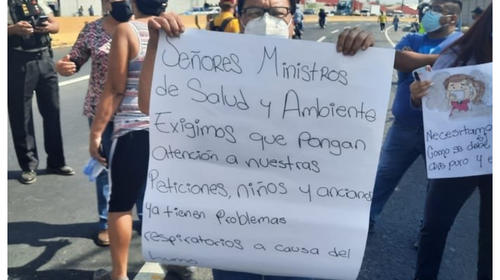 Señores Ministros
de Salud y Ambiente
Exigimos que pongan
atención a nuestras
Peticiones, niños y ancianos
ya tienen Problemas
respiratorios a causa del
humo
Necesitamos